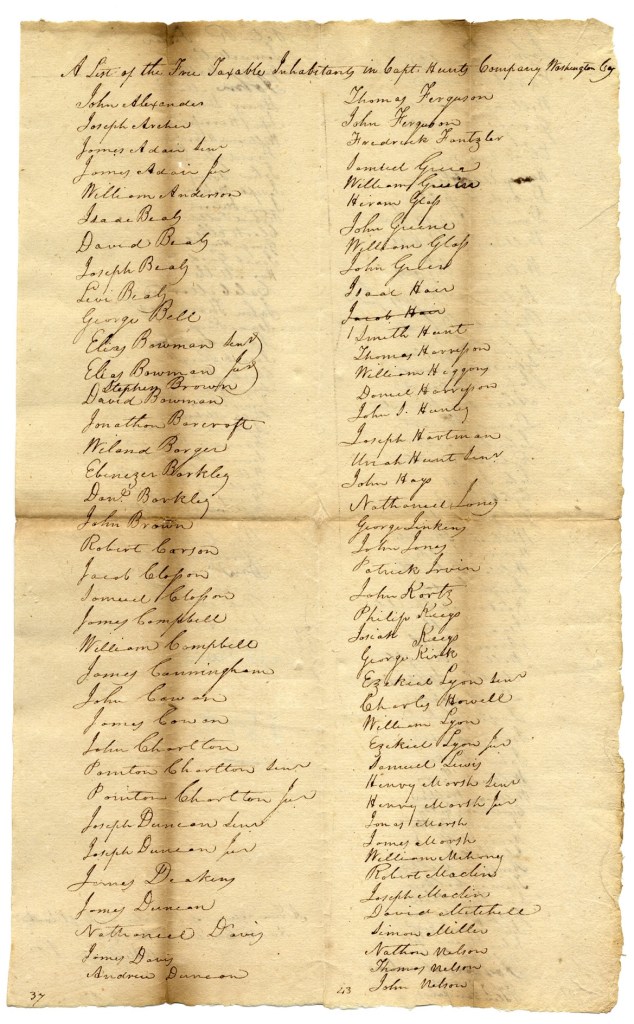 A List of the Free Taxable Inhabitants in Capt. Hunts Company Washington Coy
John Alexander
Joseph Archer
James Adair Senr
James Adair Jur
William Anderson
Isaac Bealy
David Bealy
Joseph Bealy
Levi Bealy
George Bell
Elias Bowman Senr
Elias Bowman Jur
Stephen Brown
David Bowman
Jonathan Barcroft
Weland Barger
Ebenezer Barkley
Danl. Barkley
John Brown
Robert Carson
Jacob Closson
Samuel Closson
James Campbell
William Campbell
James Cunningham
John Cowan
James Cowan
John Charlton
Pointon Charlton Senr
Pointon Charlton Jur
Joseph Duncan Senr
Joseph Duncan Jur
James Deakens
James Duncan
Nathaniel Davis
James Davis
Andrew Duncan
37
Thomas Ferguson
John Ferguson
Fredrick Fantzler
Samuel Green
William Greene
Hiram Glass
John Greene
William Glass
John Green
Isaac Hair
Jacob Hair
1 Smith Hunt
Thomas Harrisson
William Higgons
Daniel Harrisson
John S. Hunley
Joseph Hartman
Uriah Hunt Senr
John Hays
Nathaniel Jones
George Jinkins
John Jones
Patrick Irvin
John Kortz
Philip Keeys
Josiah Keeys
George Kirk
Ezekiel Lyon Senr
Charles Howell
William Lyon
Ezekiel Lyon Jur
Samuel Lewis
Henry Marsh Senr
Henry Marsh Jur
Jonas Marsh
James Marsh
William Mehoney
Robert Maclin
Joseph Maclin
David Mitchell
Simon Miller
Nathan Nelson
Thomas Nelson
John Nelson
43